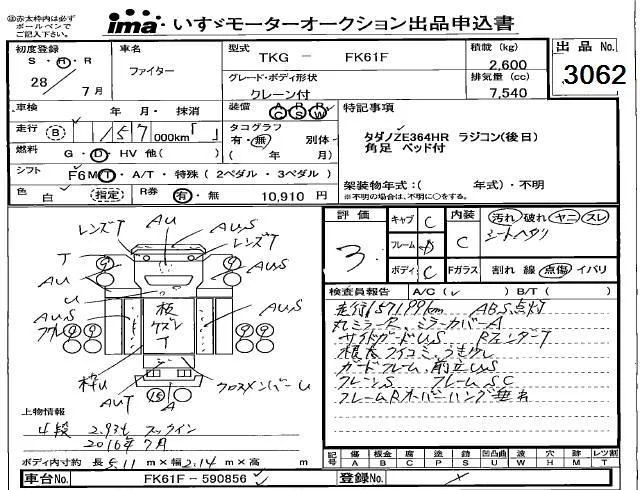 ㊟赤太枠内は必ず
ボールペンで
ご記入下さい。
ima いすゞモーターオークション出品申込書
初度登録
S・H・R
28/7月
車名
ファイター
型式
TKG - FK61F
グレード・ボディ形状
クレーン付
積載 (kg)
2,600
排気量 (cc)
7,540
出品 No.
3062
車検 年・月・抹消
装備 AC PS PW
特記事項
走行 B 157 000km「 」
タコグラフ
有・無 別体
( 年 月)
タダノZE364HR ラジコン(後日)
角足 ベッド付
燃料 G・D・HV 他( )
シフト F6MT・A/T・特殊(2ペダル・3ペダル)
色 白 (指定) R券 有・無 10,910 円
架装物年式:( 年式)・不明
※不明の場合は、不明に○をする。
評価
3
キャブ C
フレーム
ボディ C
内装 C
汚れ 破れ ヤニ スレ
シートヘタリ
Fガラス 割れ 線 点傷 イバリ
検査員報告 A/C( ✓ ) B/T( )
走行157199km ABS点灯
丸ミラーR、ミラーカバーA
サイドガードUS RフェンダーT
ガードフレーム、前立US
フレーンS フレームSC
フレームRオーバーハング垂れ
レンズT
AU
AUS
レンズT
T
AUS
AU
U
AUS
AUS
板
ワズレ
T
枠U
AUT
A
クロスメンバーU
上物情報
4段 2.93t フックイン
2016年7月
ボディ内寸約 長 5.11 m×幅 2.14 m×高 m
記号 傷 A 板金 B 腐 C 塗 P 錆 S 凹凸曲 U 波 W 穴 H 跡 M レツ割 T
車台No. FK61F-590856
登録No.